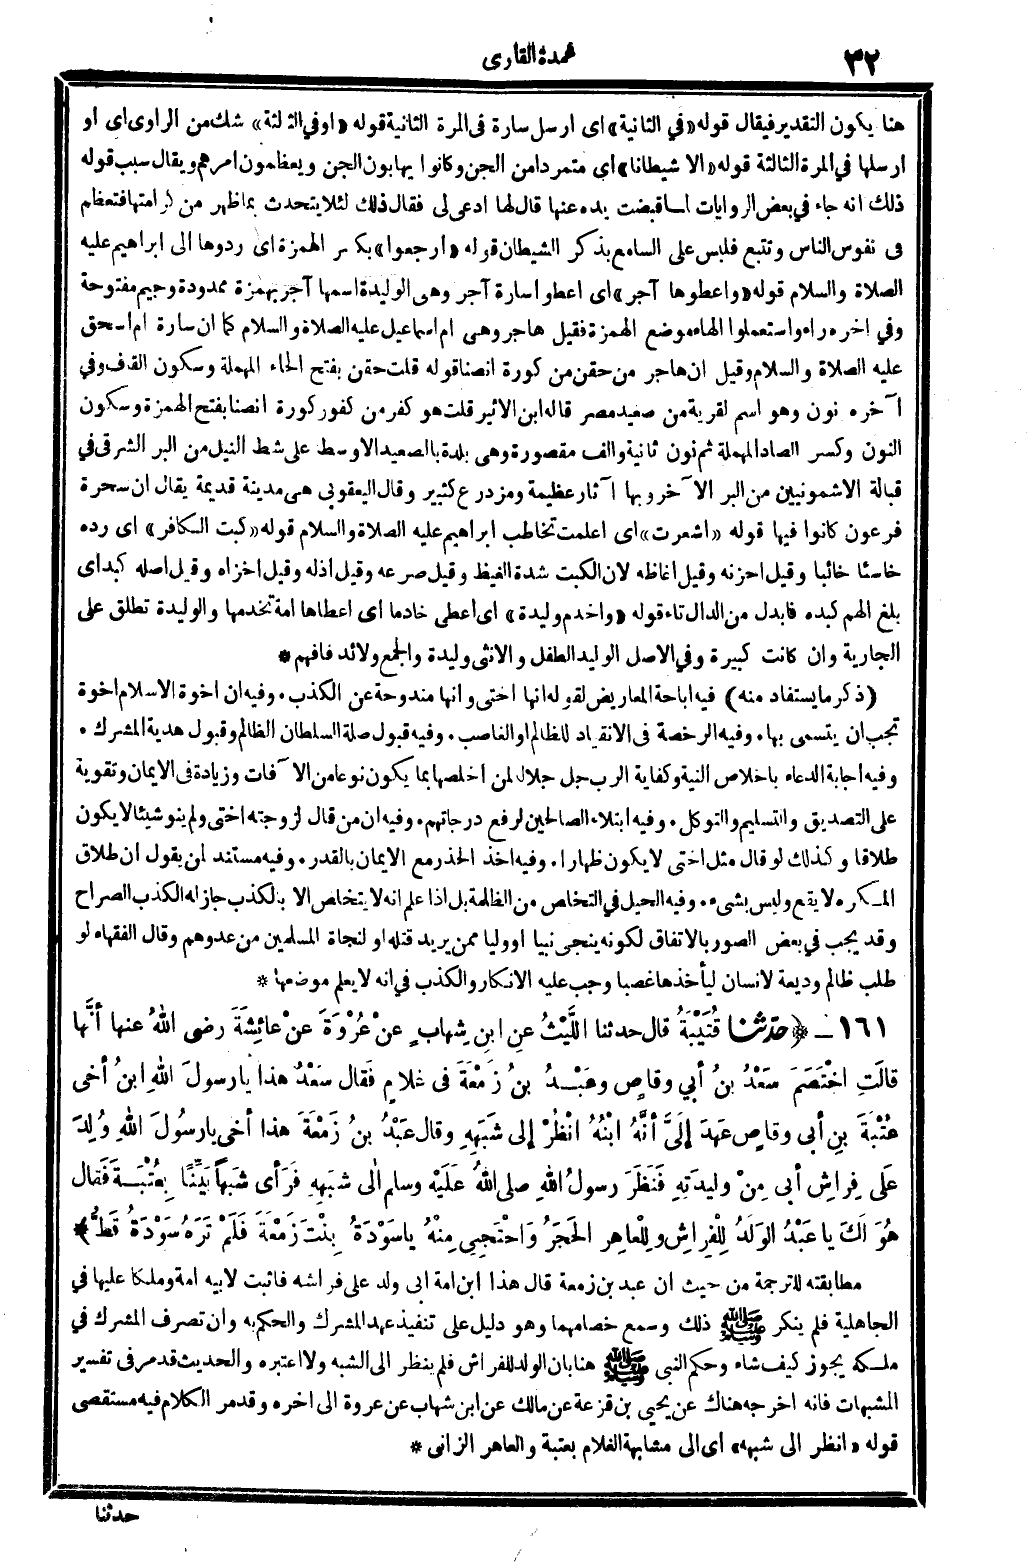 ٣٢
عمدة القارى
هنا يكون التقدير فيقال قوله «في الثانية» اى ارسل سارة فى المرة الثانية قوله «او في الثالثة» شك من الراوى اى او
ارسلها في المرة الثالثة قوله «الا شيطانا» اى متمردا من الجن وكانوا يهابون الجن ويعظمون امرهم ويقال سبب قوله
ذلك انه جاء في بعض الروايات لما قبضت يده عنها قال لها ادعى لى فقال ذلك لئلا يتحدث بما ظهر من كرامتها فتعظم
فى نفوس الناس وتتبع فلبس على السامع بذكر الشيطان قوله «ارجعوا» بكسر الهمزة اى ردوها الى ابراهيم عليه
الصلاة والسلام قوله «واعطوها آجر» اى اعطوا سارة آجر وهى الوليدة اسمها آجر بهمزة ممدودة وجيم مفتوحة
وفي اخره راء واستعملوا الهاء موضع الهمزة فقيل هاجر وهى ام اسماعيل عليه الصلاة والسلام كما ان سارة ام اسحق
عليه الصلاة والسلام وقيل ان هاجر من حقن من كورة انصنا قوله قلت حقن بفتح الحاء المهملة وسكون القاف وفي
آخره نون وهو اسم لقرية من صعيد مصر قاله ابن الاثير قلت هو كفر من كفور كورة انصنا بفتح الهمزة وسكون
النون وكسر الصاد المهملة ثم نون ثانية والف مقصورة وهى بلدة بالصعيد الاوسط على شط النيل من البر الشرقى في
قبالة الاشمونيين من البر الآخر وبها آثار عظيمة ومزدرع كثير وقال اليعقوبى هى مدينة قديمة يقال ان سحرة
فرعون كانوا فيها قوله «اشعرت» اى اعلمت تخاطب ابراهيم عليه الصلاة والسلام قوله «كبت الكافر» اى رده
خاسئا خائبا وقيل احزنه وقيل اغاظه لان الكبت شدة الغيظ وقيل صرعه وقيل اذله وقيل اخزاه وقيل اصله كبد اى
بلغ الهم كبده فابدل من الدال تاء قوله «واخدم وليدة» اى اعطى خادما اى اعطاها امة تخدمها والوليدة تطلق على
الجارية وان كانت كبيرة وفي الاصل الوليد الطفل والانثى وليدة والجمع ولائد فافهم *
(ذكر ما يستفاد منه) فيه اباحة المعاريض لقوله انها اختى وانها مندوحة عن الكذب ٠ وفيه ان اخوة الاسلام اخوة
تجب ان يتسمى بها ٠ وفيه الرخصة فى الانقياد للظالم او الغاصب ٠ وفيه قبول صلة السلطان الظالم وقبول هدية المشرك ٠
وفيه اجابة الدعاء باخلاص النية وكفاية الرب جل جلاله لمن اخلصها بما يكون نوعا من الآفات وزيادة فى الايمان وتقوية
على التصديق والتسليم والتوكل ٠ وفيه ابتلاء الصالحين لرفع درجاتهم ٠ وفيه ان من قال لزوجته اختى ولم ينو شيئا لا يكون
طلاقا وكذلك لو قال مثل اختى لا يكون ظهارا ٠ وفيه اخذ الحذر مع الايمان بالقدر ٠ وفيه مستند لمن يقول ان طلاق
المكره لا يقع وليس بشىء ٠ وفيه الحيل في التخاص من الظلمة بل اذا علم انه لا يتخاص الا بالكذب جاز له الكذب الصراح
وقد يجب في بعض الصور بالاتفاق لكونه ينجى نبيا او وليا ممن يريد قتله او لنجاة المسلمين من عدوهم وقال الفقهاء لو
طلب ظالم وديعة لانسان ليأخذها غصبا وجب عليه الانكار والكذب في انه لا يعلم موضعها *
١٦١ ـ ﴿حَدَّثَنَا قُتَيْبَةُ قال حدثنا اللَّيْثُ عنِ ابنِ شِهابٍ عنْ عُرْوَةَ عنْ عائِشَةَ رضى اللهُ عنها أنَّها
قالَتِ اخْتَصَمَ سَعْدُ بنُ أبي وقاصٍ وعَبْدُ بنُ زَمْعَةَ فى غلامٍ فَقال سَعْدٌ هذا يارسولَ اللهِ ابنُ أخى
عُتْبَةَ بنِ أبى وقاصٍ عَهِدَ إلَىَّ أنَّهُ ابْنُهُ انْظُرْ إلى شَبَهِهِ وقال عَبْدُ بنُ زَمْعَةَ هذا أخى يارسُولَ اللهِ وُلِدَ
عَلَى فِراشِ أبى مِنْ وليدَتِهِ فَنَظَرَ رسولُ اللهِ صلى اللهُ عَلَيْه وسلم إلى شَبَهِهِ فَرَأى شَبَهاً بَيِّنًا بِعُتْبَةَ فَقال
هُوَ لَكَ يا عَبْدُ الوَلَدُ لِلْفِراشِ ولِلْعاهِرِ الحَجَرُ وَاحْتَجِبِى مِنْهُ ياسَوْدَةُ بِنْتَ زَمْعَةَ فَلَمْ تَرَهُ سَوْدَةُ قَطُّ﴾
مطابقته للترجمة من حيث ان عبد بن زمعة قال هذا ابن امة ابى ولد على فراشه فاثبت لابيه امة وملكا عليها في
الجاهلية فلم ينكر ﷺ ذلك وسمع خصامهما وهو دليل على تنفيذ عهد المشرك والحكم به وان تصرف المشرك في
ملكه يجوز كيف شاء وحكم النبى ﷺ هنا بان الولد للفراش فلم ينظر الى الشبه ولا اعتبره والحديث قد مر فى تفسير
المشبهات فانه اخرجه هناك عن يحيى بن قزعة عن مالك عن ابن شهاب عن عروة الى اخره وقد مر الكلام فيه مستقصى
قوله «انظر الى شبهه» اى الى مشابهة الغلام بعتبة والعاهر الزانى *
حدثنا